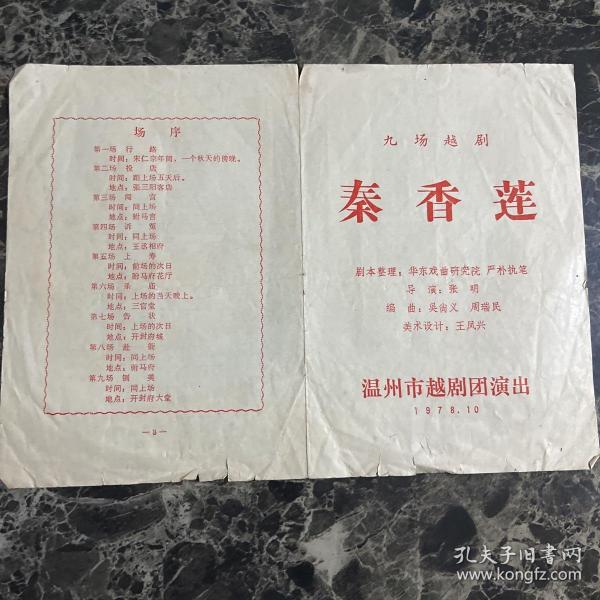 场 序
第一场 行 路
时间：宋仁宗年间，一个秋天的傍晚。
第二场 投 店
时间：距上场五天后。
地点：张三阳客店
第三场 闯 宫
时间：同上场
地点：驸马宫
第四场 诉 冤
时间：同上场
地点：王丞相府
第五场 上 寿
时间：前场的次日
地点：驸马府花厅
第六场 杀 庙
时间：上场的当天晚上。
地点：三官堂
第七场 告 状
时间：上场的次日
地点：开封府城
第八场 赴 衙
时间：同上场
地点：驸马府
第九场 铡 美
时间：同上场
地点：开封府大堂
九 场 越 剧
秦 香 莲
剧本整理：华东戏曲研究院 严朴执笔
导 演：张 明
编 曲：吴尚义 周瑞民
美术设计：王凤兴
温州市越剧团演出
1978.10
孔夫子旧书网
www.kongfz.com